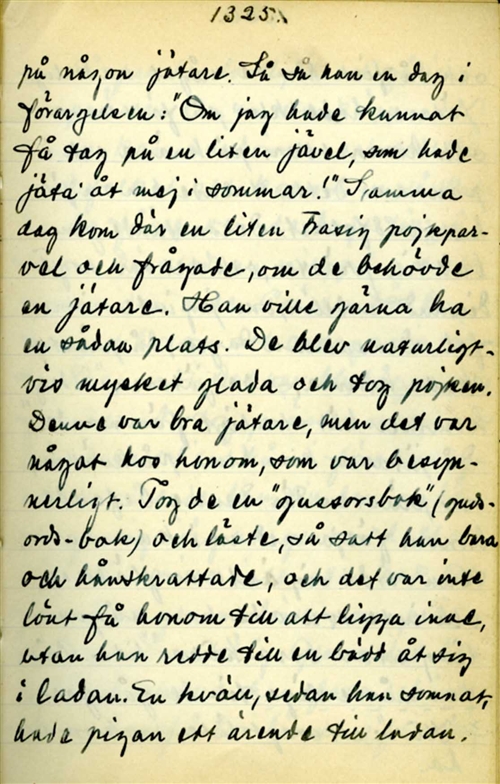 1325.
på någon jätare. Så sa han en dag i
förargelsen: "Om jag hade kunnat
få tag på en liten jävel, som hade
jäta' åt mej i sommar!" Samma
dag kom där en liten trasig pojkpar-
vel och frågade, om de behövde
en jätare. Han ville gärna ha
en sådan plats. De blev naturligt-
vis mycket glada och tog pojken.
Denne var bra jätare, men det var
något hos honom, som var besyn-
nerligt. Tog de en "gussorsbok" (guds-
ords-bok) och läste, så satt han bara
och hånskrattade, och det var inte
lönt få honom till att ligga inne,
utan han redde till en bädd åt sig
i ladan. En kväll, sedan han somnat,
hade pigan ett ärende till ladan.